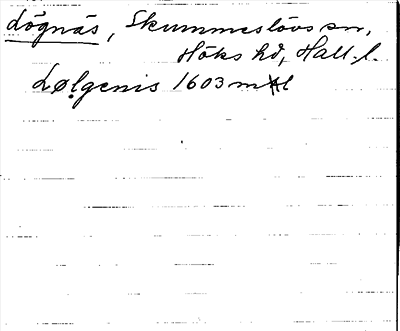 Lögnäs, Skummeslövs sn,
Höks hd, Hall. l.
Lø!genis 1603